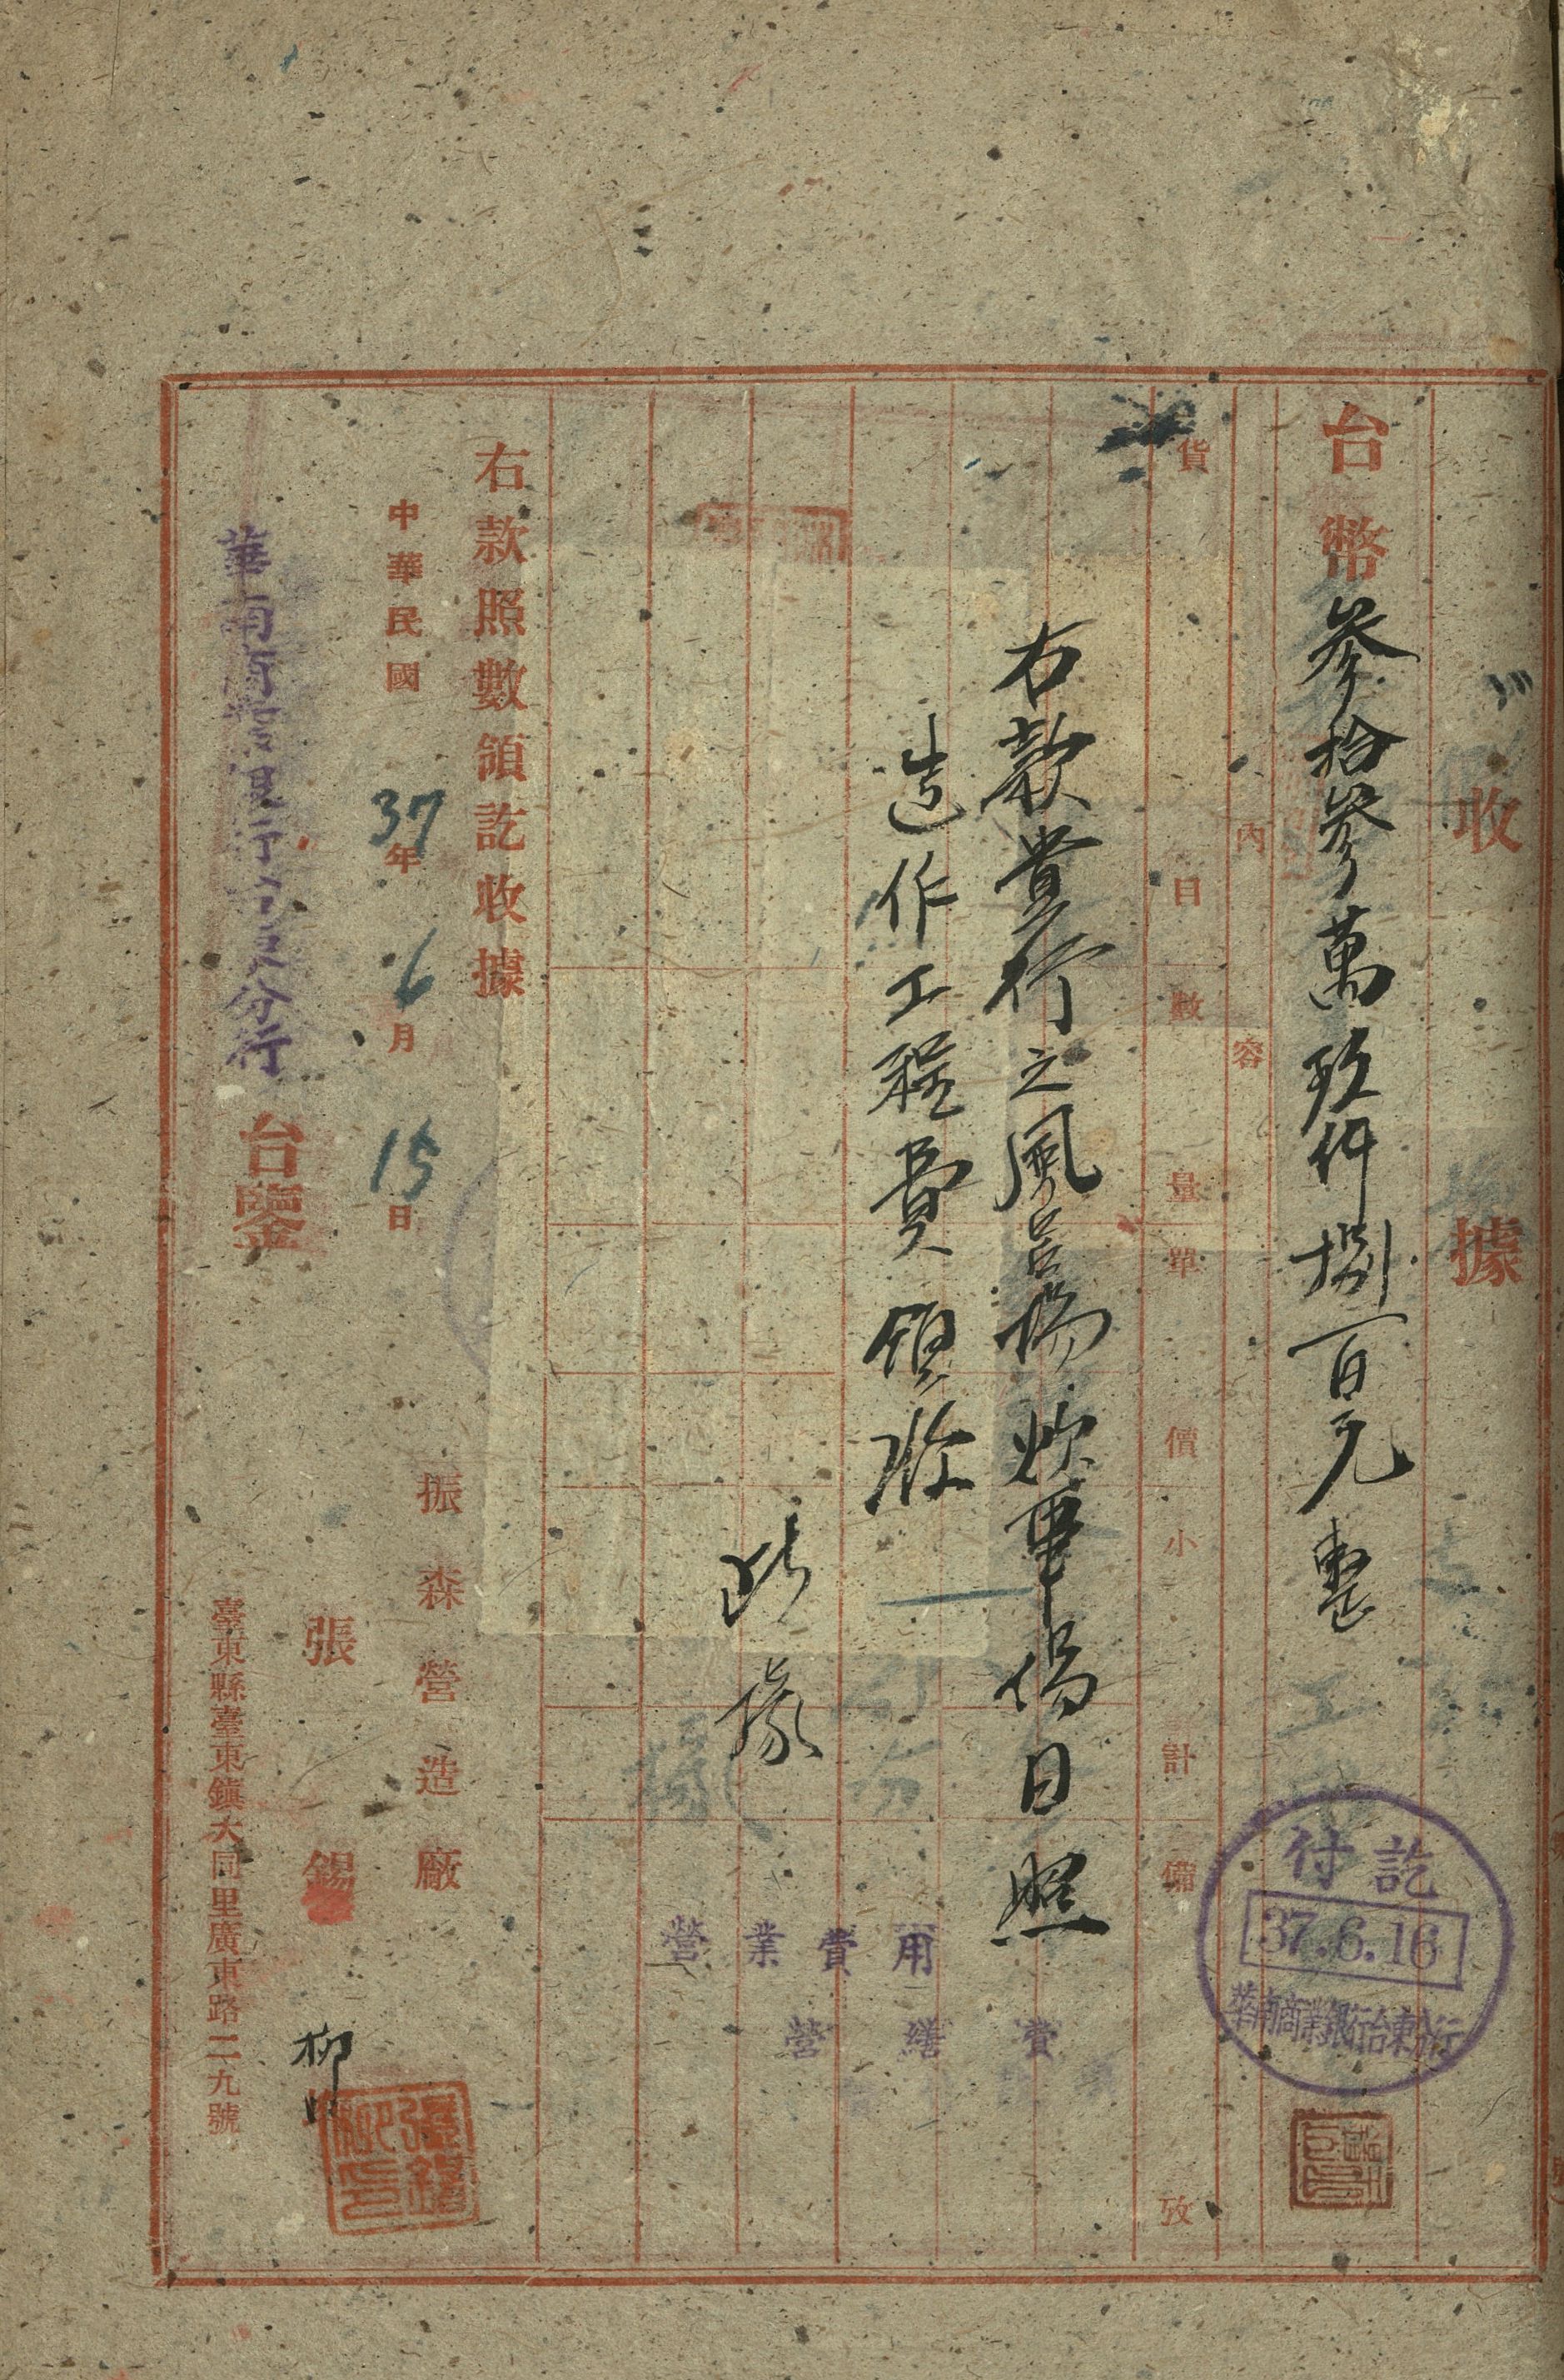 收據
台幣參拾參萬玖仟捌百元整
內容
貨目 數量 單價 小計 備攷
右款貴行之風呂場炊事場日照
造作工程費領收
此據
右款照數領訖收據
中華民國37年6月15日
振森營造廠
張錫柳
臺東縣臺東鎮大同里廣東路二九號
華南商業銀行台東分行 台鑒
付訖
37.6.16
華南商業銀行台東分行
營業費用
營繕費
張錫柳印